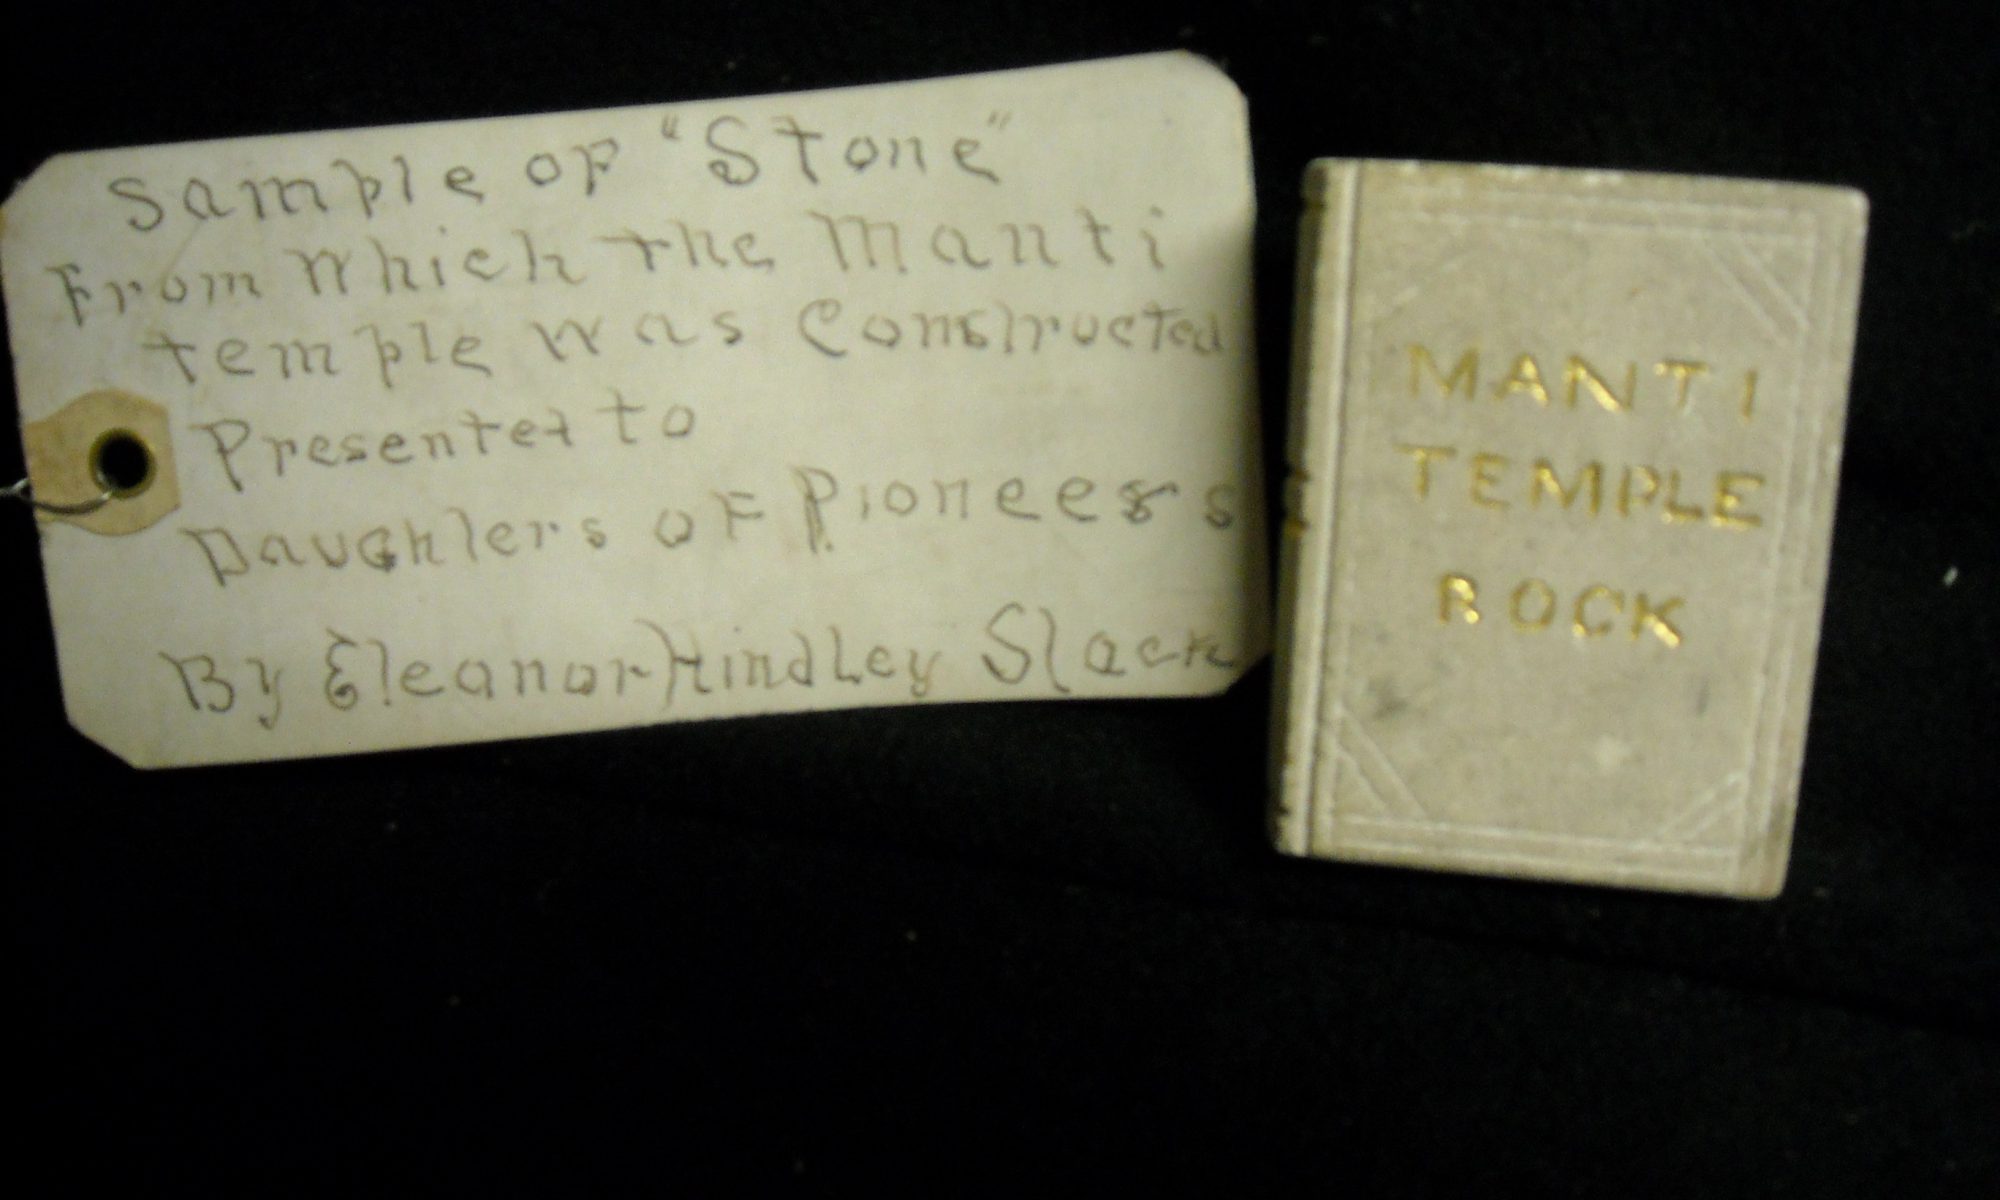 Sample of "Stone"
From which the Manti
temple was Constructed
Presented to
Daughters of Pioneers
By Eleanor Hindley Slack
MANTI
TEMPLE
ROCK